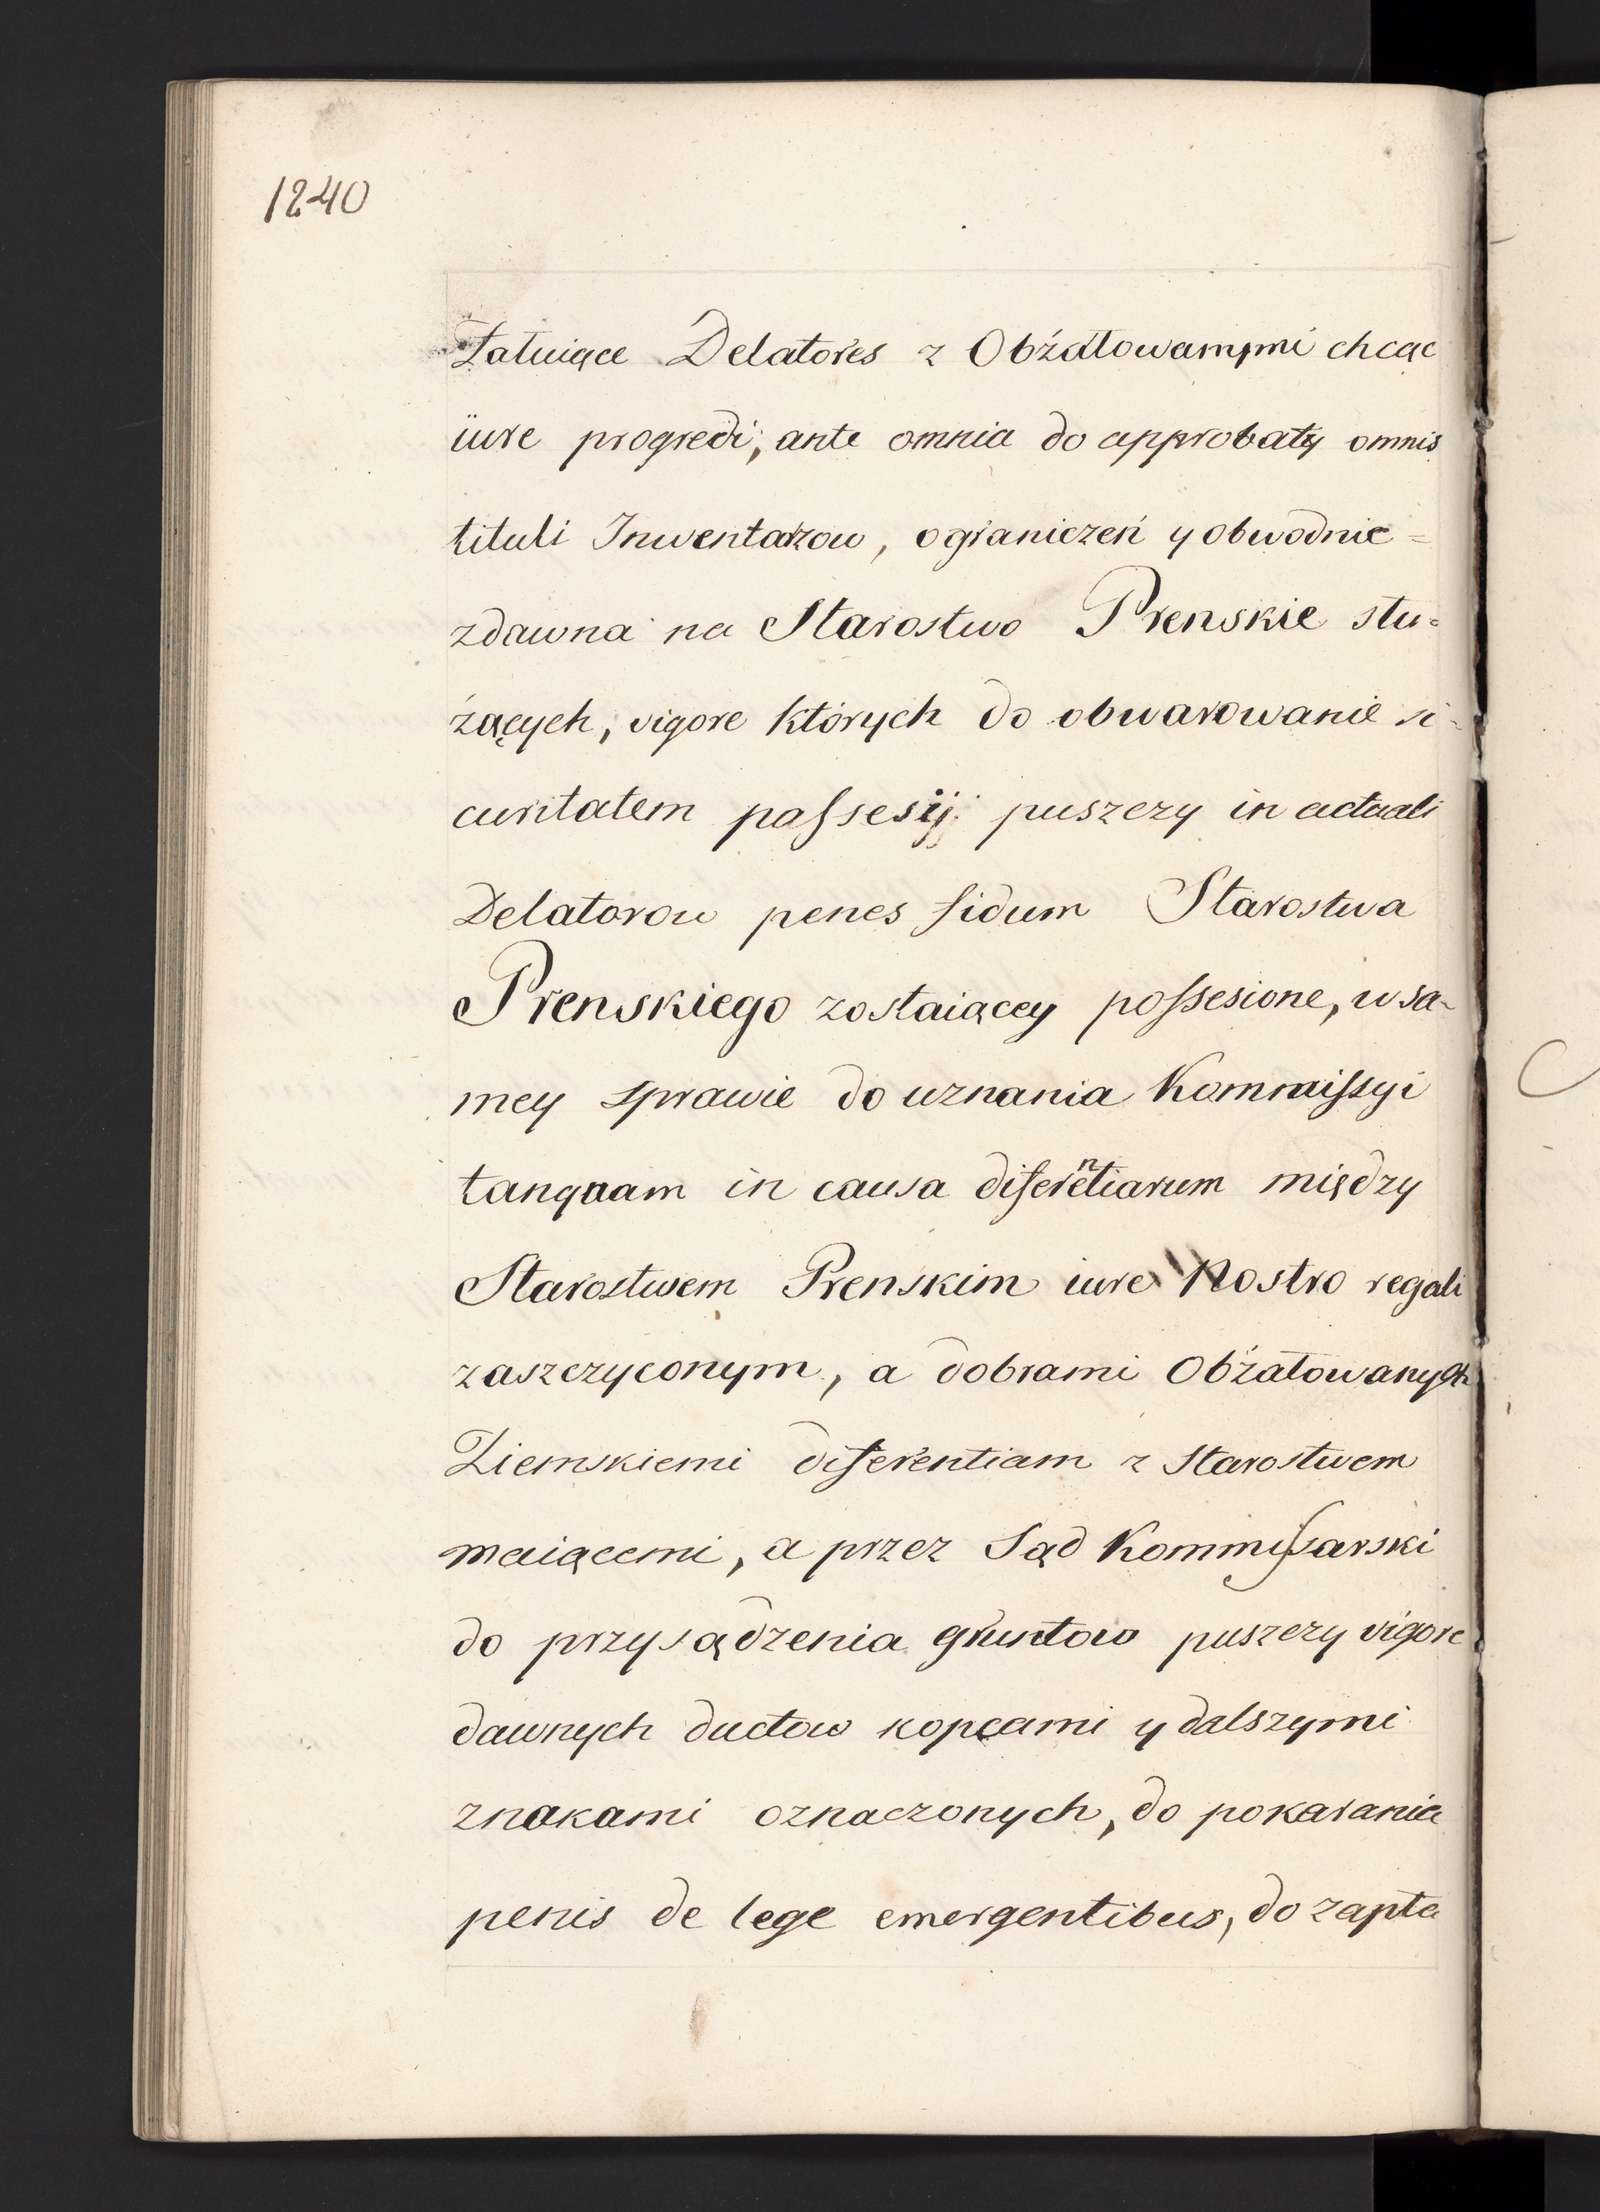 1240
Żałuiące Delatores z Obżałowanymi chcąc
iure progredi, ante omnia do approbaty omnis
tituli Inwentarzow, ograniczeń y obwodnic =
zdawna na Starostwo Prenskie słu=
żących, vigore których do obwarowanie si-
curitatem passesij puszczy in actuali
Delatorow penes fidum Starostwa
Prenskiego zostaiącey possesione, w sa-
mey sprawie do uznania Kommissyi
tanquam in causa diferentiarum między
Starostwem Prenskim iure Nostro regali
zaszczyconym, a dobrami Obżałowanych
Ziemskiemi diferentiam z Starostwem
maiącemi, a przez Sąd Kommissarski
do przysądzenia gruntow puszczy vigore
dawnych ductow kopcami y dalszymi
znakami oznaczonych, do pokarania
penis de lege emergentibus, do zapła